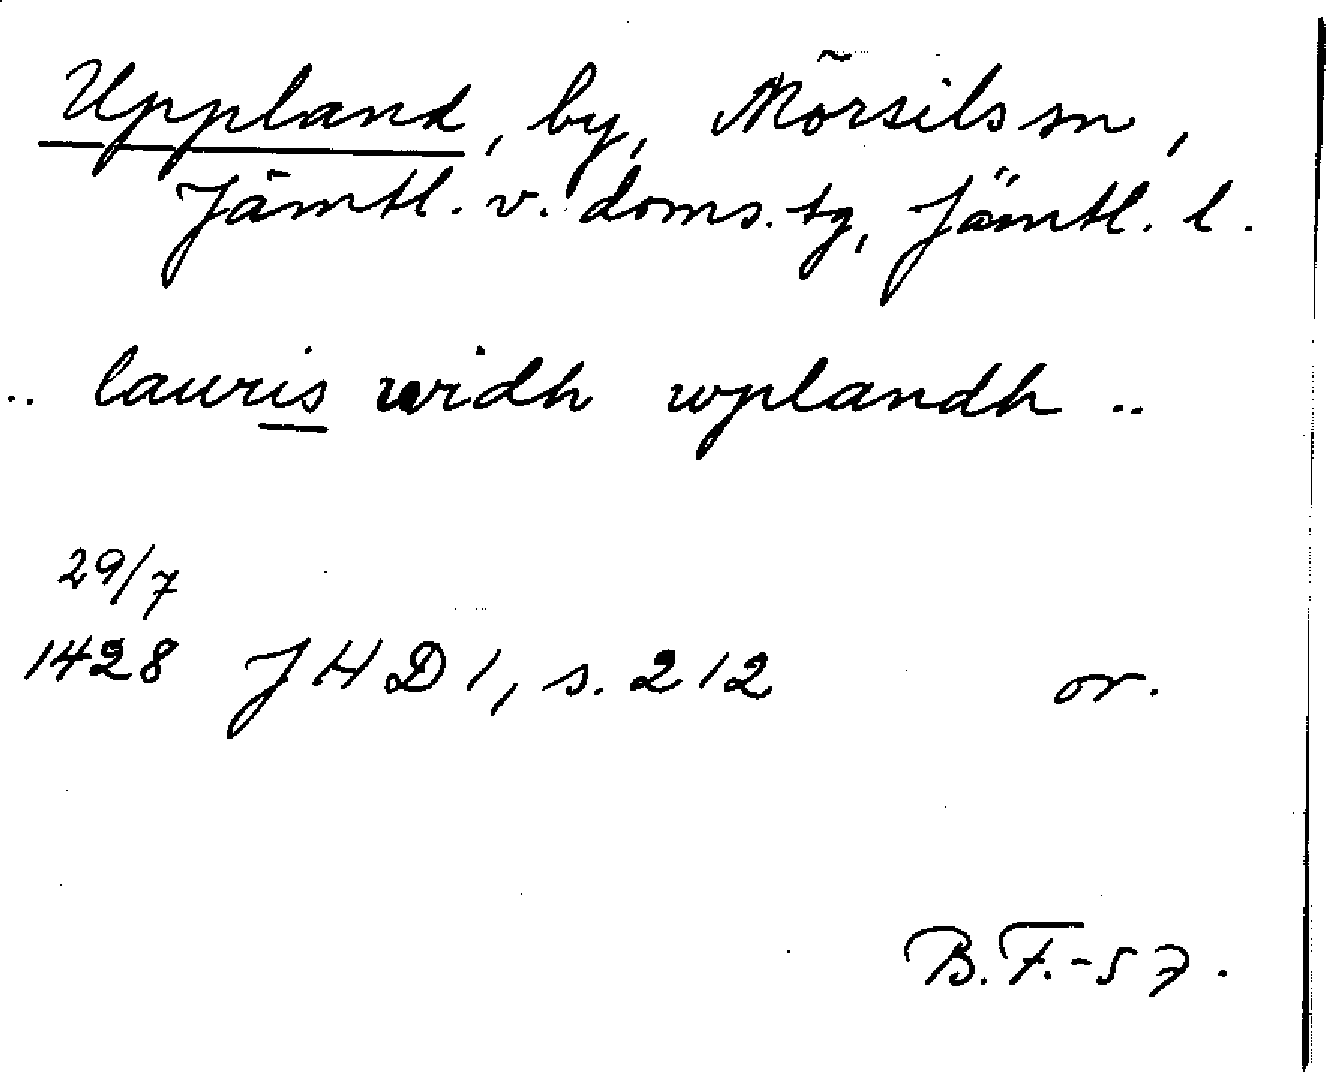 Uppland, by, Mörsils sn,
Jämtl. v. doms. tg, Jämtl. l.
.. lauris widh wplandh ..
29/7
1428 JHD 1, s. 212 or.
B.F.-57.